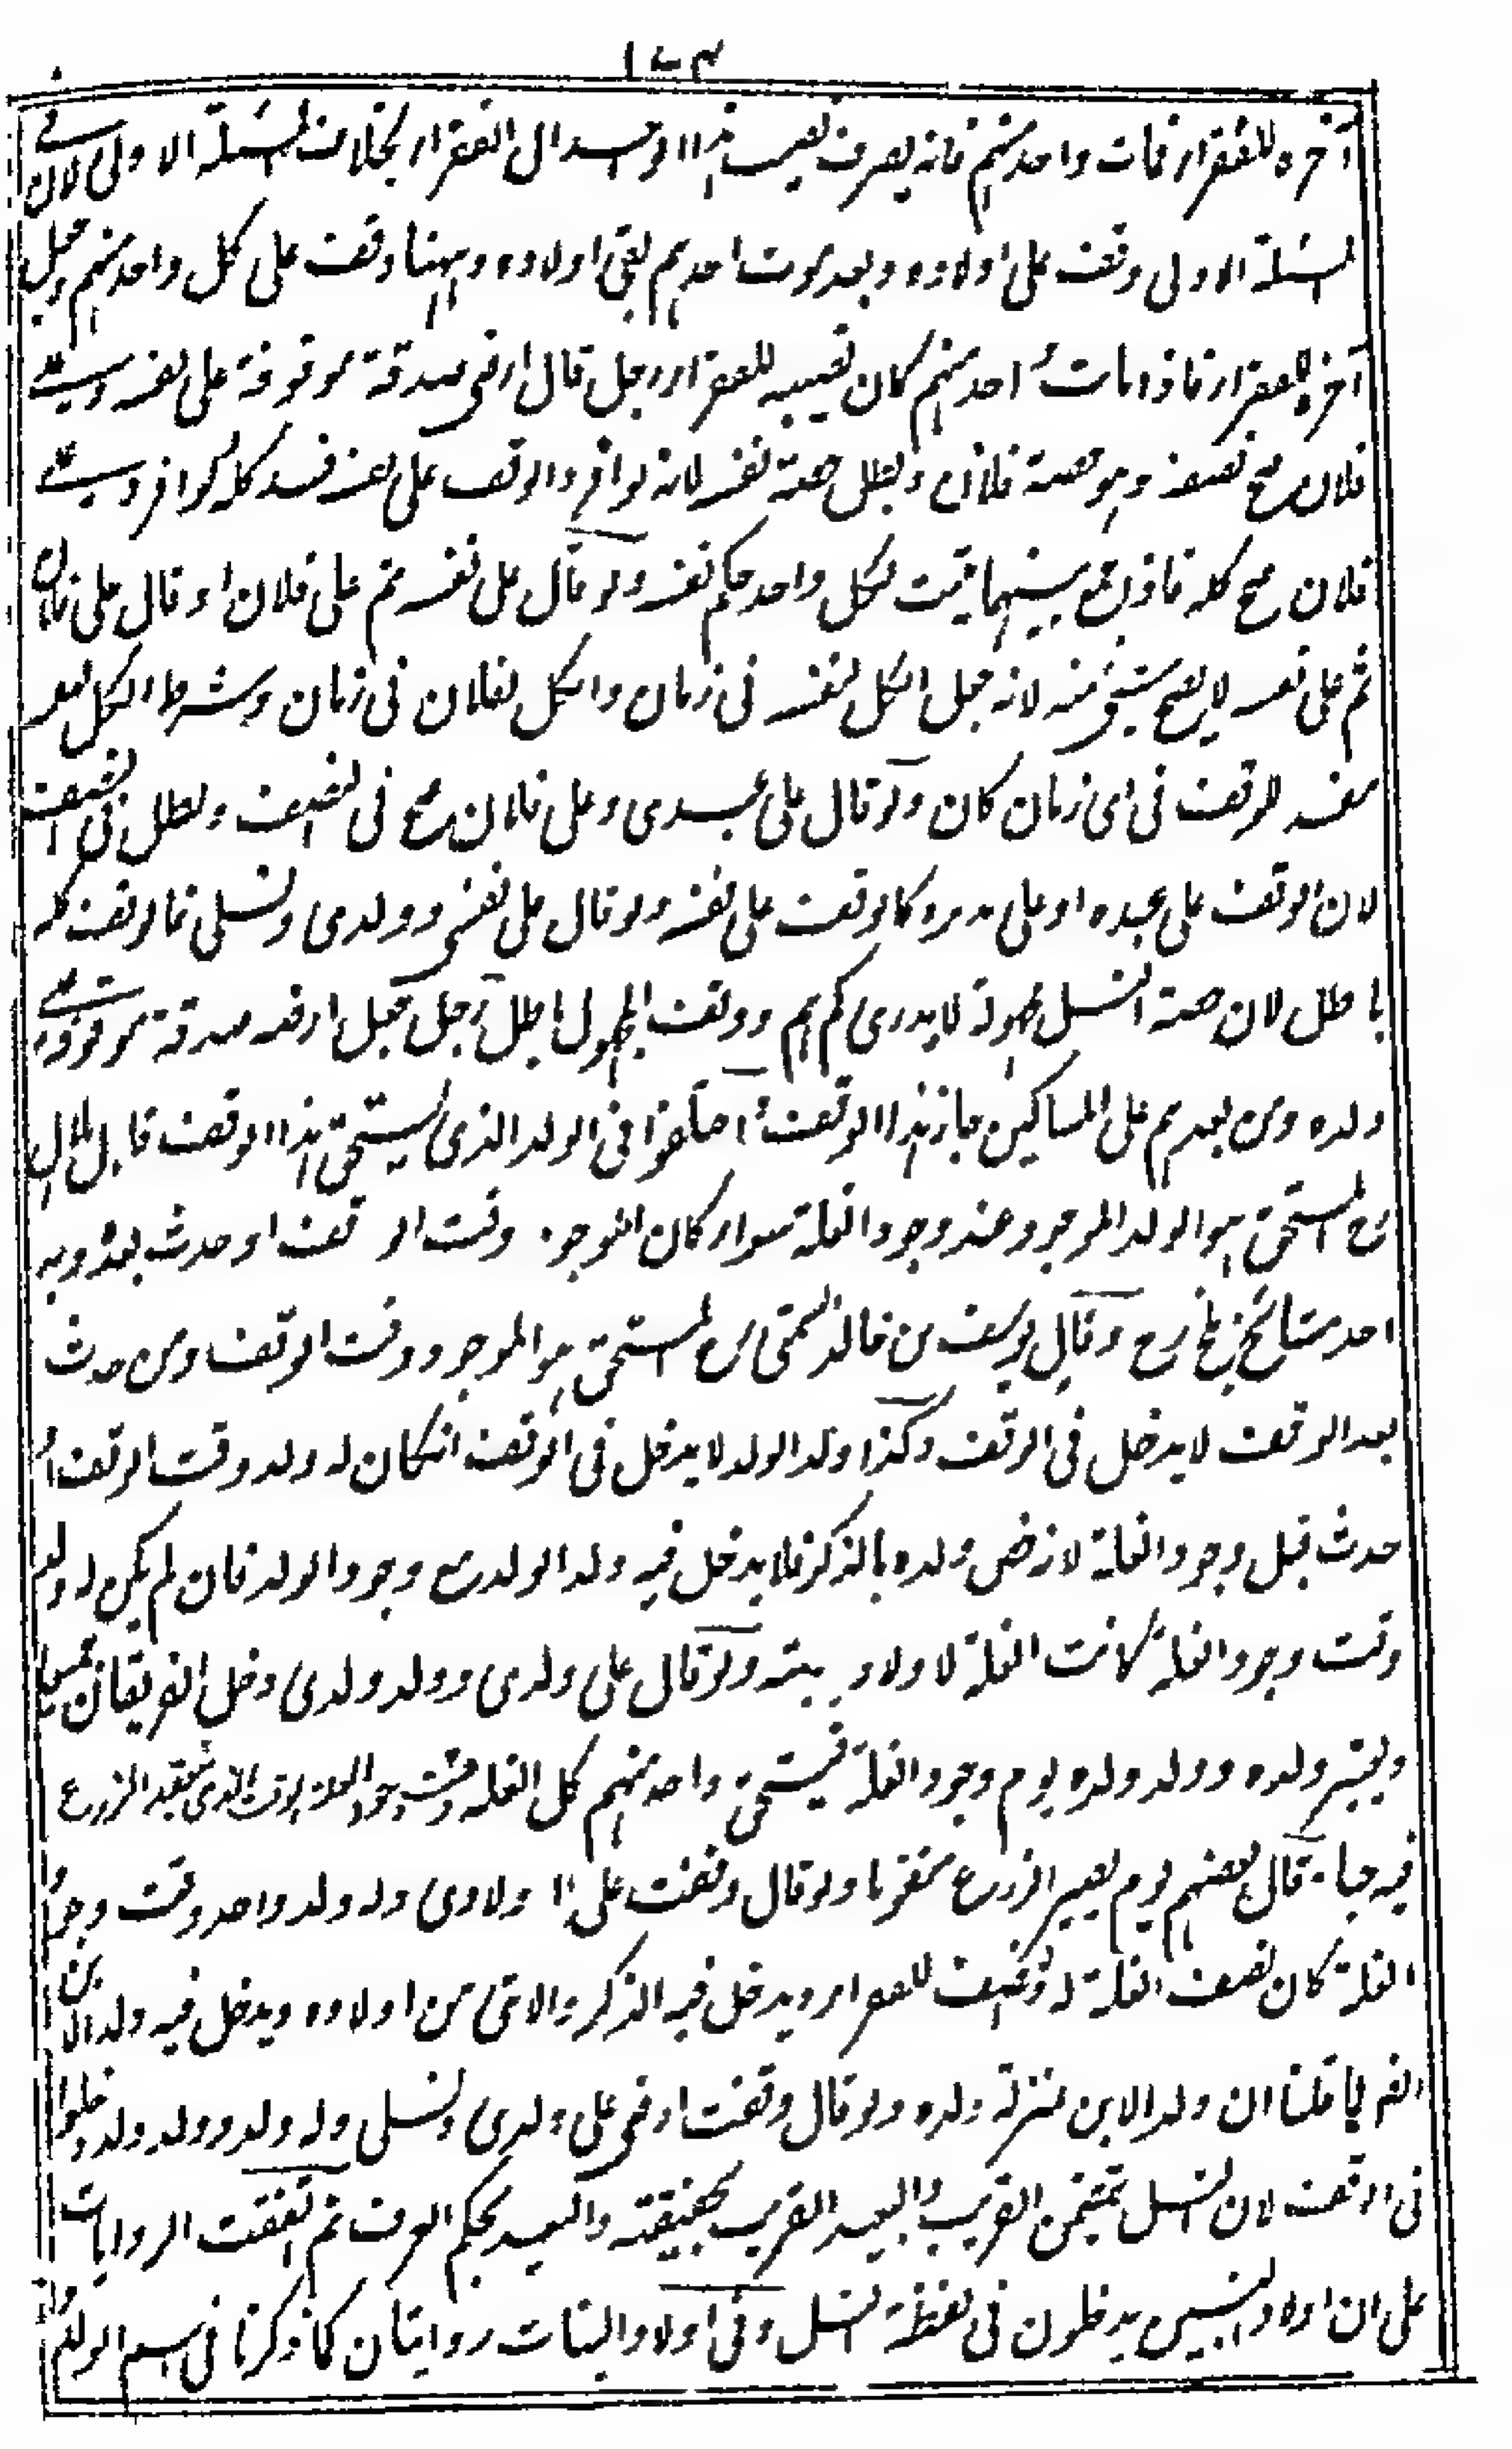 ١٧٣
آخره للفقراء فمات واحد منهم فانه يصرف نصيب هذا الواحد الى الفقراء بخلاف المسئلة الاولى لان فى
المسئلة الاولى وقف على اولاده وبعد موت احدهم بقى اولاده وههنا وقف على كل واحد منهم وجعل
آخره للفقراء فاذا مات احد منهم كان نصيبه للفقراء رجل قال ارضى صدقة موقوفة على نفسى وعلى
فلان صح نصفه وهو حصة فلان وبطل حصة نفسه لانه لو افرد الوقف على نفسه فسد كله ولو افرد على
فلان صح كله فاذا جمع بينهما يثبت لكل واحد حكم نفسه ولو قال على نفسى ثم على فلان او قال على فلان
ثم على نفسى لا يصح شئ منه لانه جعل الكل لنفسه فى زمان والكل لفلان فى زمان وشرط الكل لنفسه
مفسد للوقف فى اى زمان كان ولو قال على عبدى وعلى فلان صح فى النصف وبطل فى النصف
لان الوقف على عبده او على مدبره كالوقف على نفسه ولو قال على نفسى وولدى ونسلى فالوقف كله
باطل لان حصة النسل مجهولة لا يدرى كم هم ووقف المجهول باطل رجل جعل ارضه صدقة موقوفة على
ولده ومن بعدهم على المساكين جاز هذا الوقف اختلفوا فى الولد الذى يستحق هذا الوقف قال هلال
رح المستحق هو الولد الموجود عند وجود الغلة سواء كان الموجود وقت الوقف او حدث بعده وبه
اخذ مشايخ بلخ رح وقال يوسف بن خالد السمتى رح المستحق هو الموجود وقت الوقف ومن حدث
بعد الوقف لا يدخل فى الوقف وكذا ولد الولد لا يدخل فى الوقف انكان له ولد وقت الوقف او
حدث قبل وجود الغلة لانه خص ولده بالذكر فلا يدخل فيه ولد الولد مع وجود الولد فان لم يكن له ولد
وقت وجود الغلة كانت الغلة لاولاد بنته ولو قال على ولدى وولد ولدى دخل الفريقان جميعا
ويعتبر ولده وولد ولده يوم وجود الغلة فيستحق واحد منهم كل الغلة وقت وجود الغلة الوقت الذى ينعقد الزرع
فيه حبا وقال بعضهم يوم يصير الزرع متقوما ولو قال وقفت على اولادى وله ولد واحد وقت وجود
الغلة كان نصف الغلة له والنصف للفقراء ويدخل فيه الذكر والانثى من اولاده ويدخل فيه ولد الابن
ايضا لما قلنا ان ولد الابن بمنزلة ولده ولو قال وقفت ارضى على ولدى ونسلى وله ولد وولد ولد دخلوا
فى الوقف لان النسل يتضمن القريب والبعيد القريب بحقيقته والبعيد بحكم العرف ثم اتفقت الروايات
على ان اولاد البنين يدخلون فى لفظة النسل وفى اولاد البنات روايتان كما ذكرنا فى اسم الولد